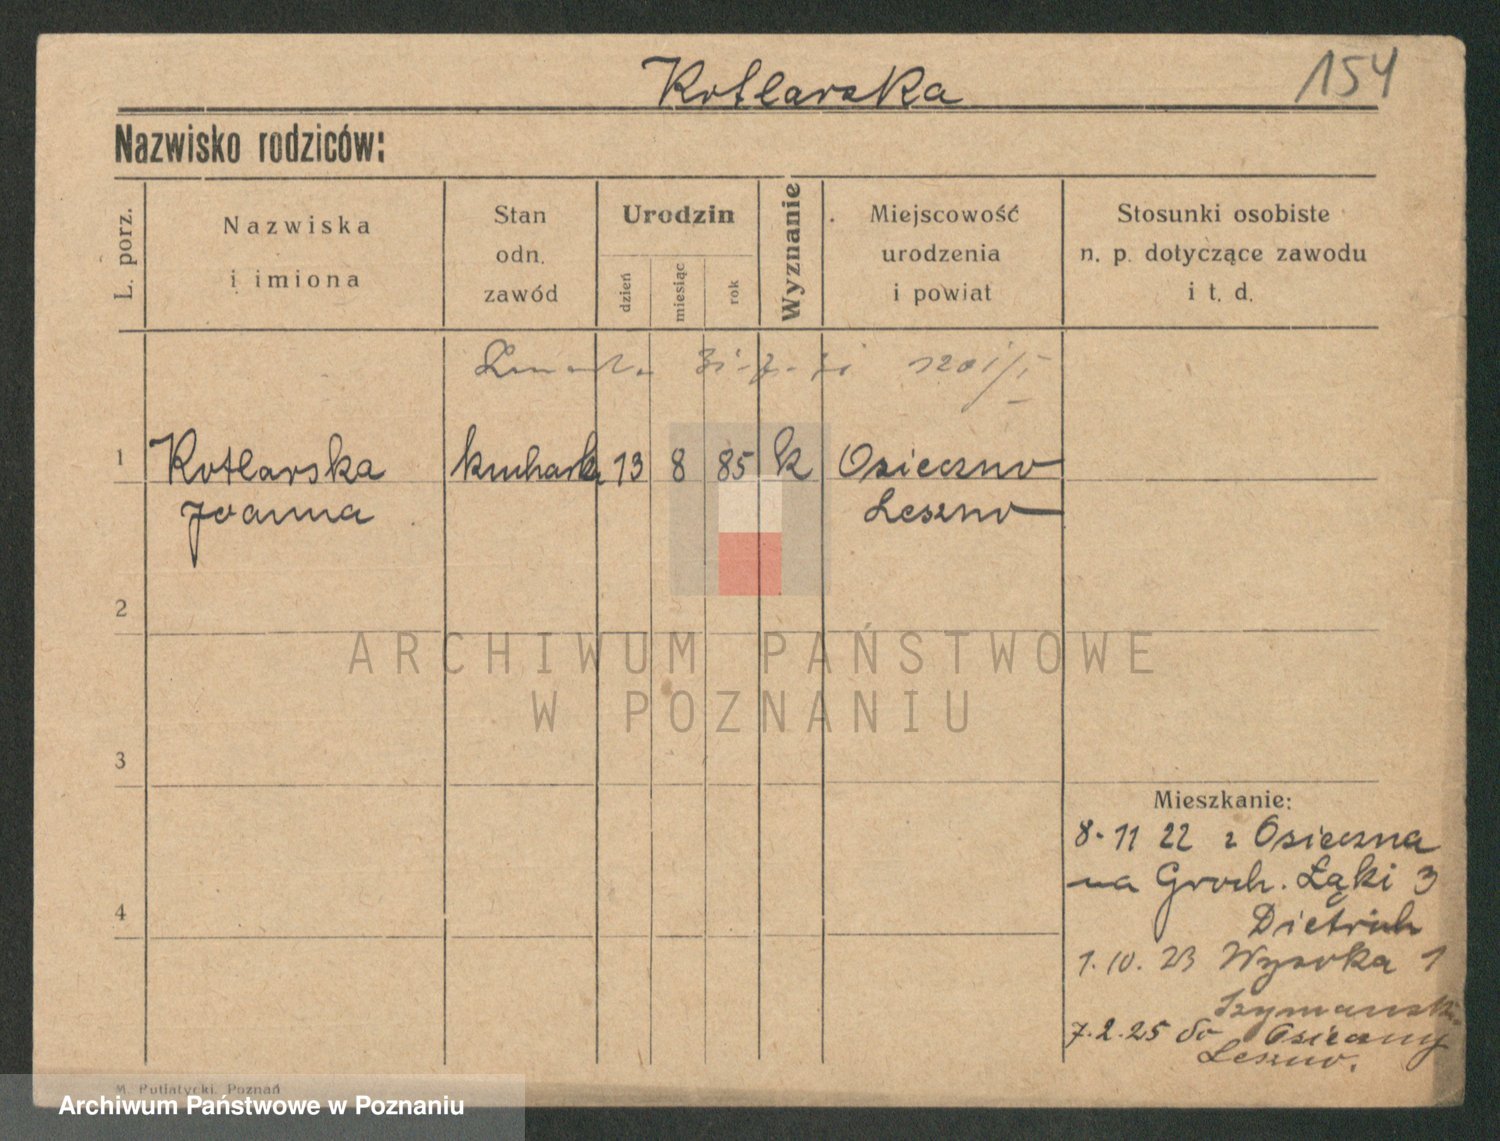 Kotlarska
154
Nazwisko rodziców:
L. porz.
Nazwiska
i imiona
Stan
odn.
zawód
Urodzin
dzień
miesiąc
rok
Wyznanie
Miejscowość
urodzenia
i powiat
Stosunki osobiste
n. p. dotyczące zawodu
i t. d.
1 Kotlarska kucharka 13 8 85 k Osieczno
Joanna Leszno
2
ARCHIWUM PAŃSTWOWE
W POZNANIU
3
Mieszkanie:
8-11 22 z Osieczna
na Groch. Łąki 3
4
Dietrich
1.10.23 Wysoka 1
Szymański
7.2.25 do Osieczny
Leszno.
M. Putiatycki, Poznań
Archiwum Państwowe w Poznaniu